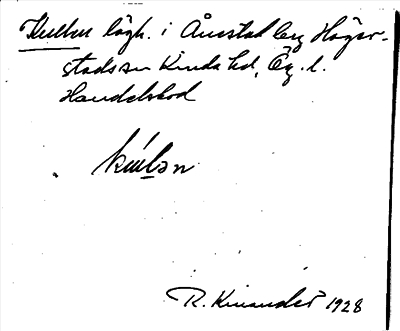 Kullen lägh. i Ånestad by Höger-
stads sn Kinda hd, Ög. l.
Handelsbod
R. Kinander 1928